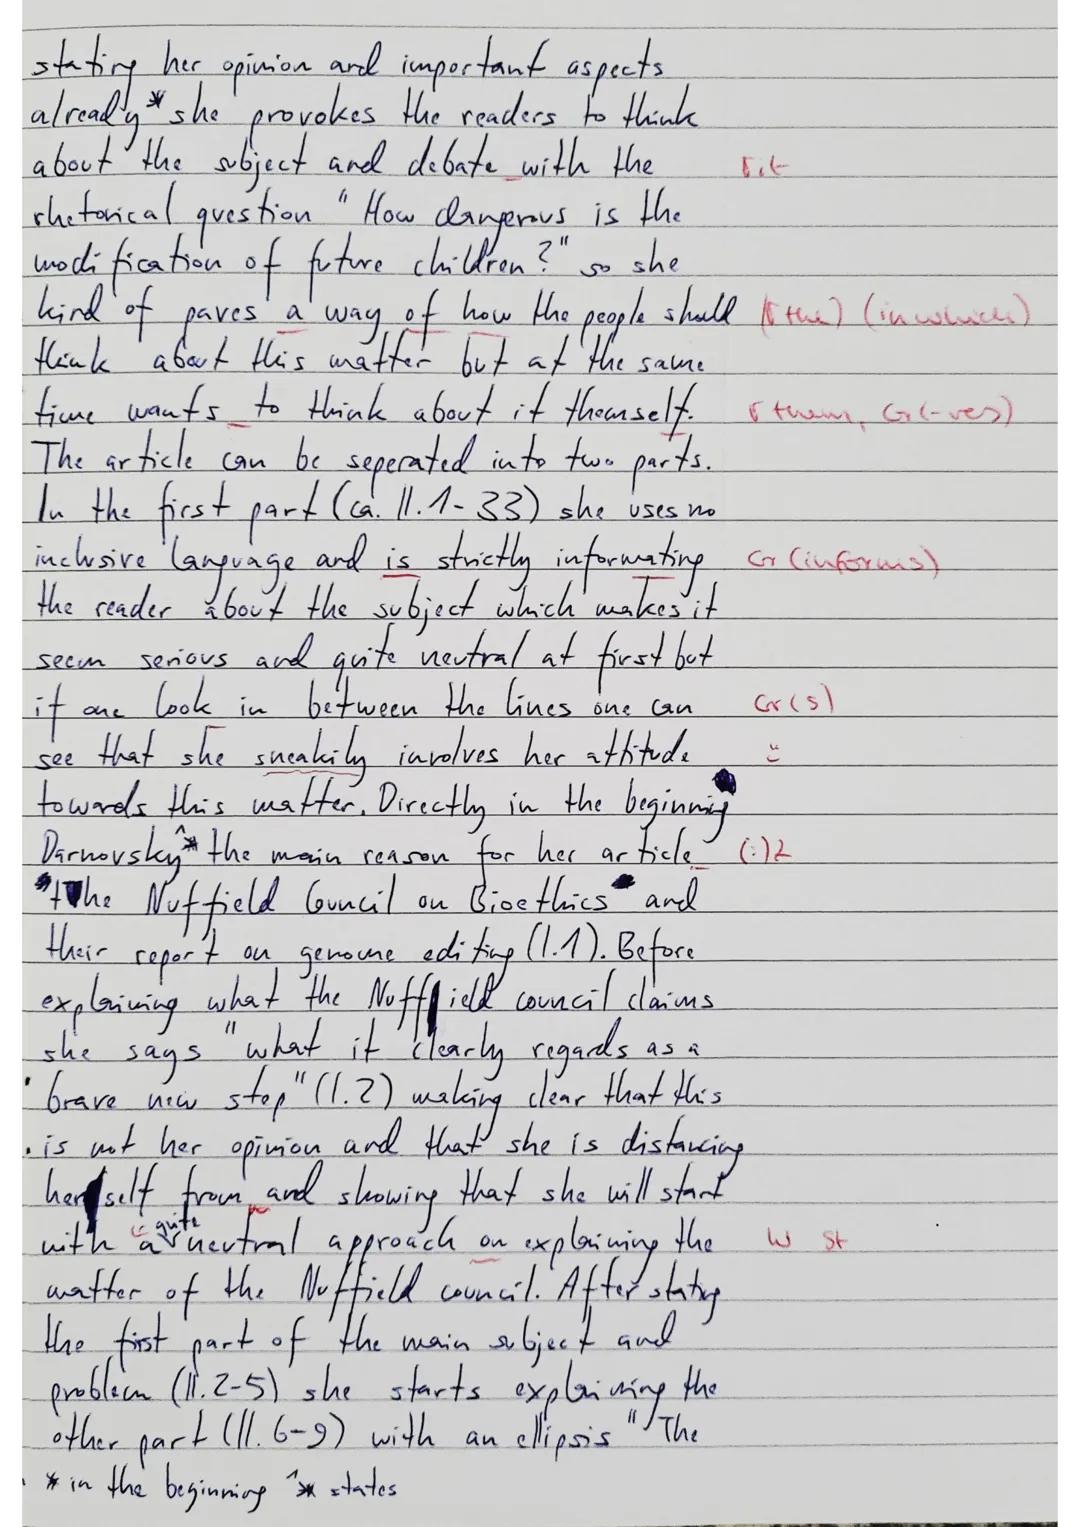 stating her opinion and important aspects
already * she provokes the readers to think
about the subject and debate with the
Γit
rhetorical question "How dangerous is the
modification of future children?" so she
kind of paves a way of how the people should
(Γthe) (in which)
think about this matter but at the same
time wants to think about it themself.
Γ them, Gr(-ves)
The article can be seperated into two parts.
In the first part (ca. ll. 1-33) she uses no
inclusive language and is strictly informating
Gr (informs)
the reader about the subject which makes it
seem serious and quite neutral at first but
if one look in between the lines one can
Gr(s)
see that she sneakily involves her attitude
towards this matter. Directly in the beginning
Darnovsky ^* the main reason for her article
(:)Z
"the Nuffield Council on Bioethics" and
their report on genome editing (l.1). Before
explaining what the Nuffield council claims
she says "what it clearly regards as a
brave new step" (l.2) making clear that this
is not her opinion and that she is distancing
herself from and showing that she will start
with a quite neutral approach on explaining the
W St
matter of the Nuffield council. After stating
the first part of the main subject and
problem (ll. 2-5) she starts explaining the
other part (ll. 6-9) with an ellipsis "The
* in the beginning ^* states